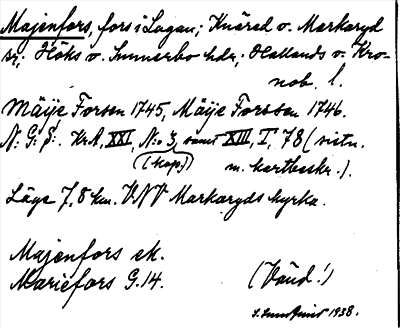 Majenfors, fors i Lagan; Knäred o. Markaryd
sn; Höks o. Sunnerbo hdr; Hallands o. Kro-
nob. l.
Mäije Forsen 1745, Mäije Forssen 1746.
N: G: S: KrA, XXI, N:o 3, samt XIII, I, 78 (sistn.
(kop.) m. kartbeskr.).
Läge 7,8 km. VNV Markaryds kyrka.
Majenfors ek.
Mariefors G. 14. (Vänd!)
1938.